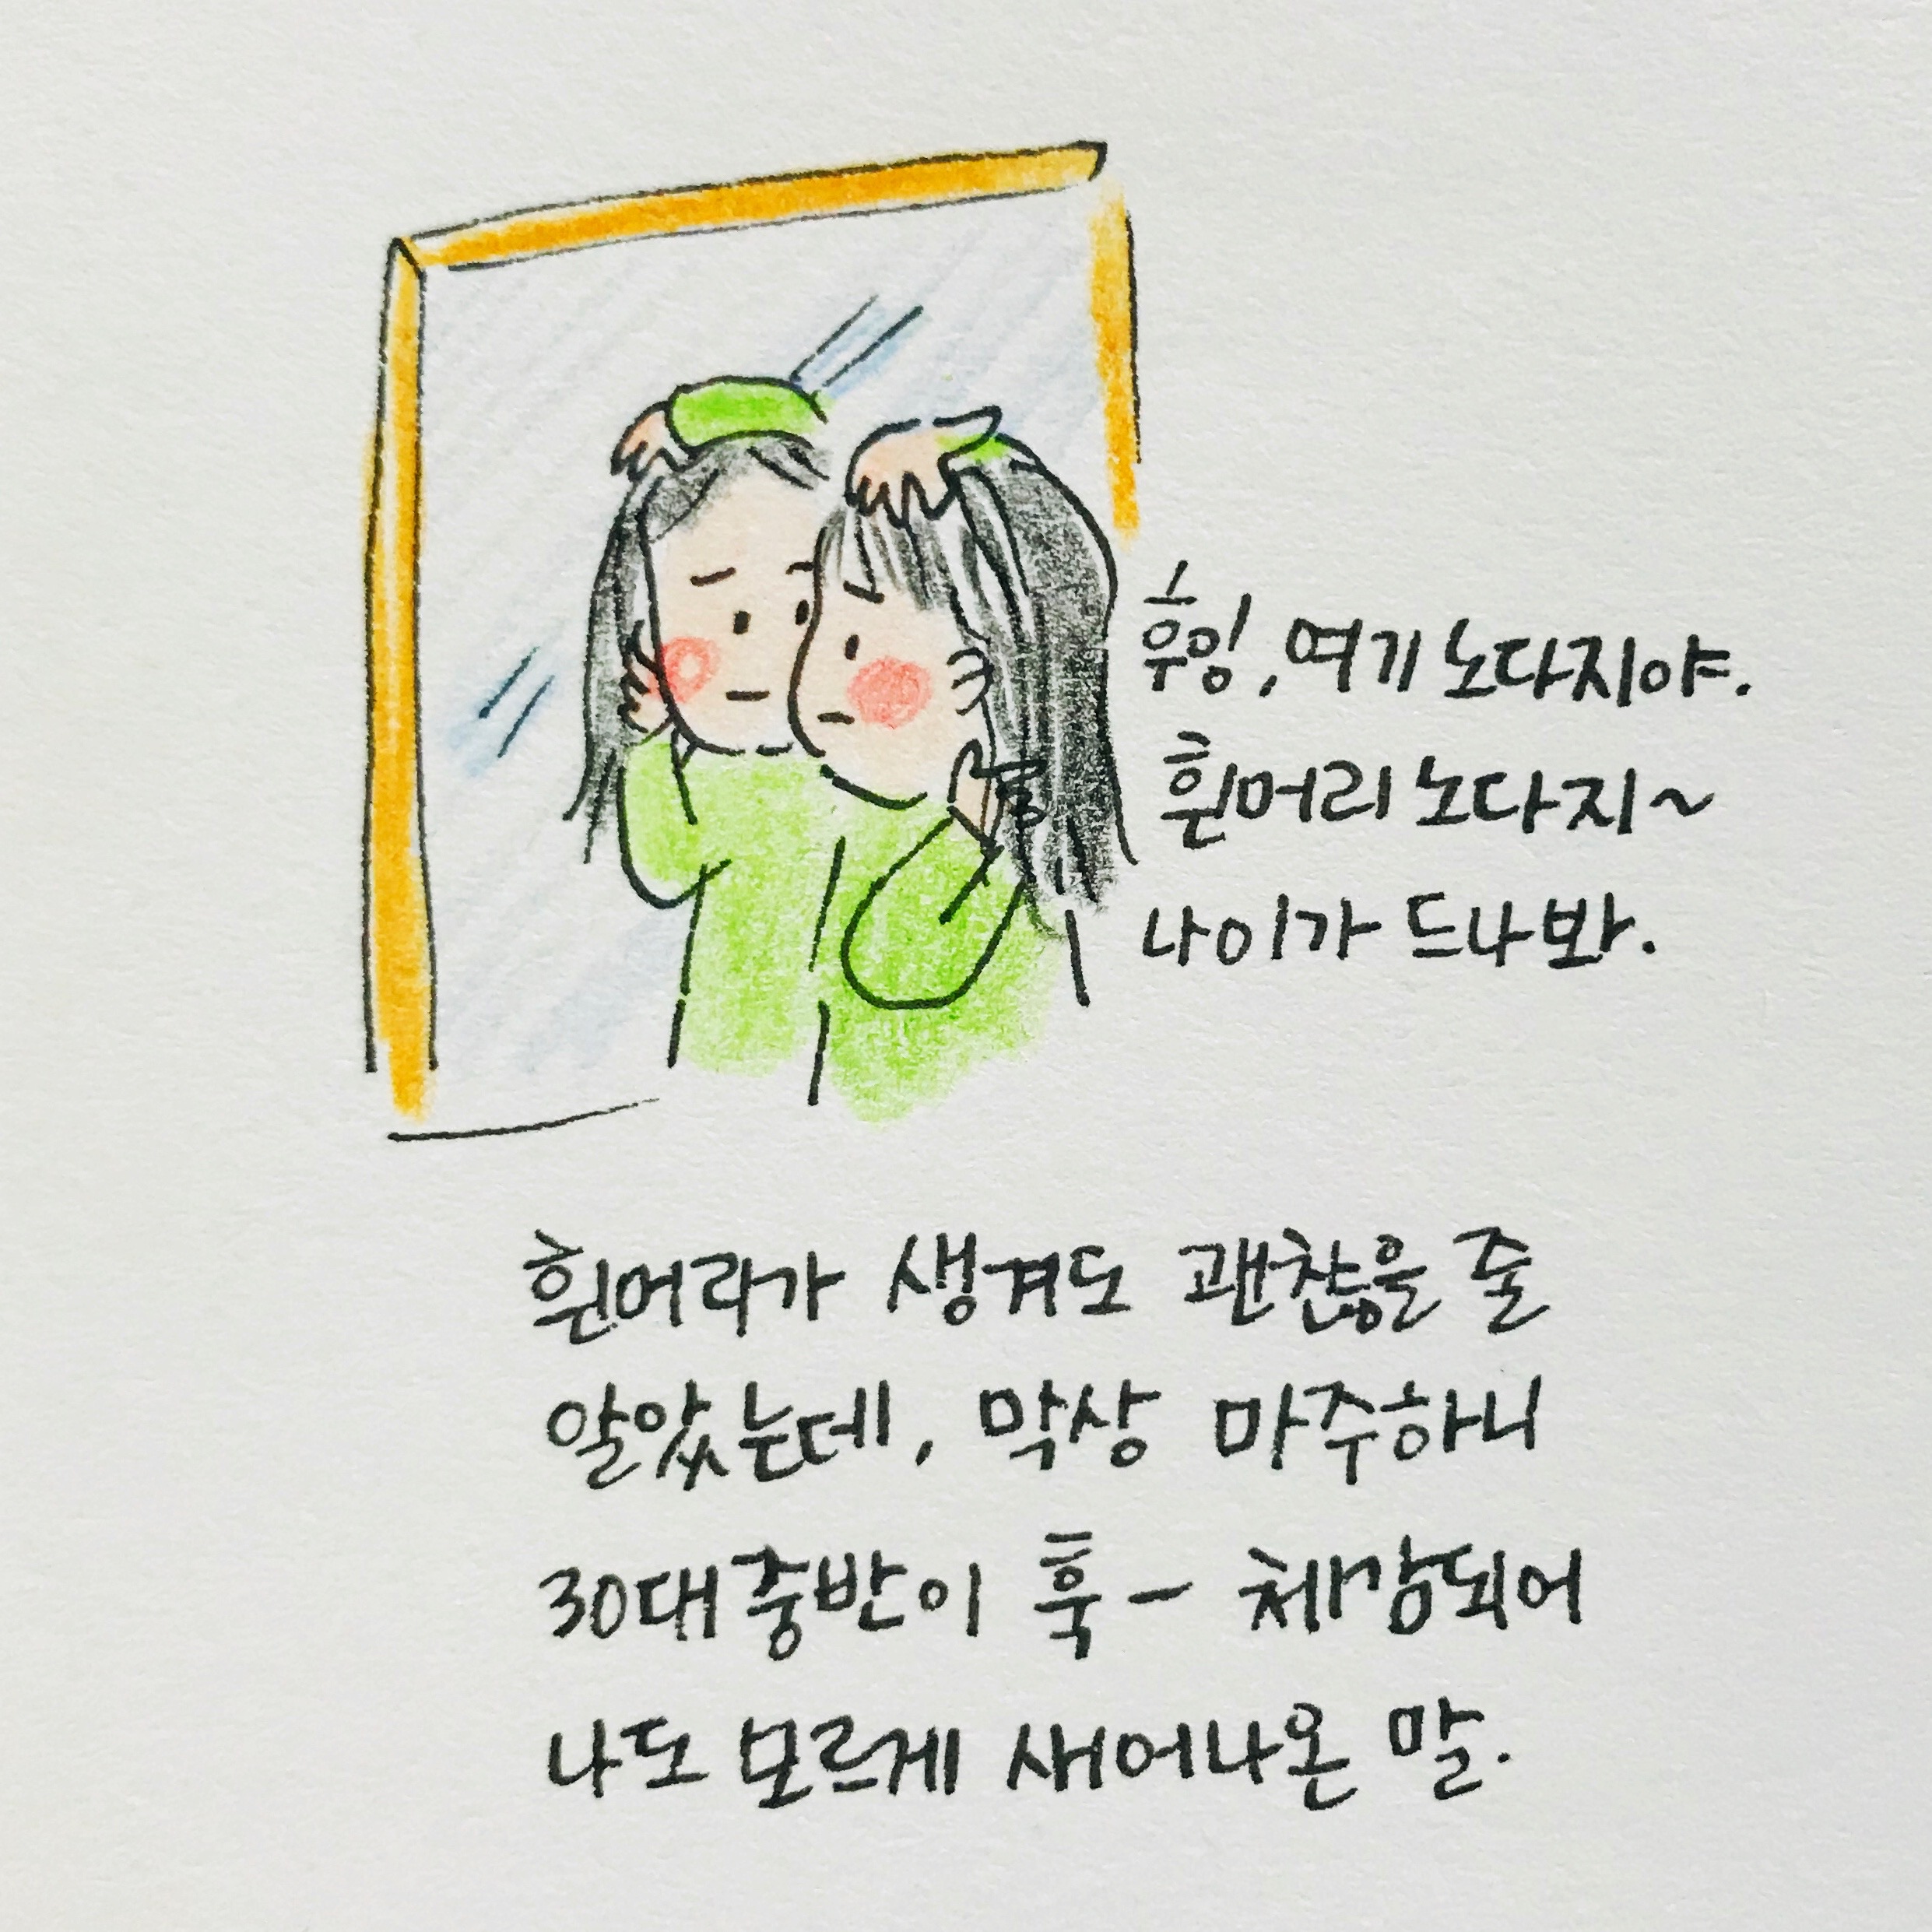 흐잉, 여기 노다지야.
흰머리 노다지~
나이가 드나봐.
흰머리가 생겨도 괜찮을 줄
알았는데, 막상 마주하니
30대 중반이 훅- 체감되어
나도 모르게 새어나온 말.